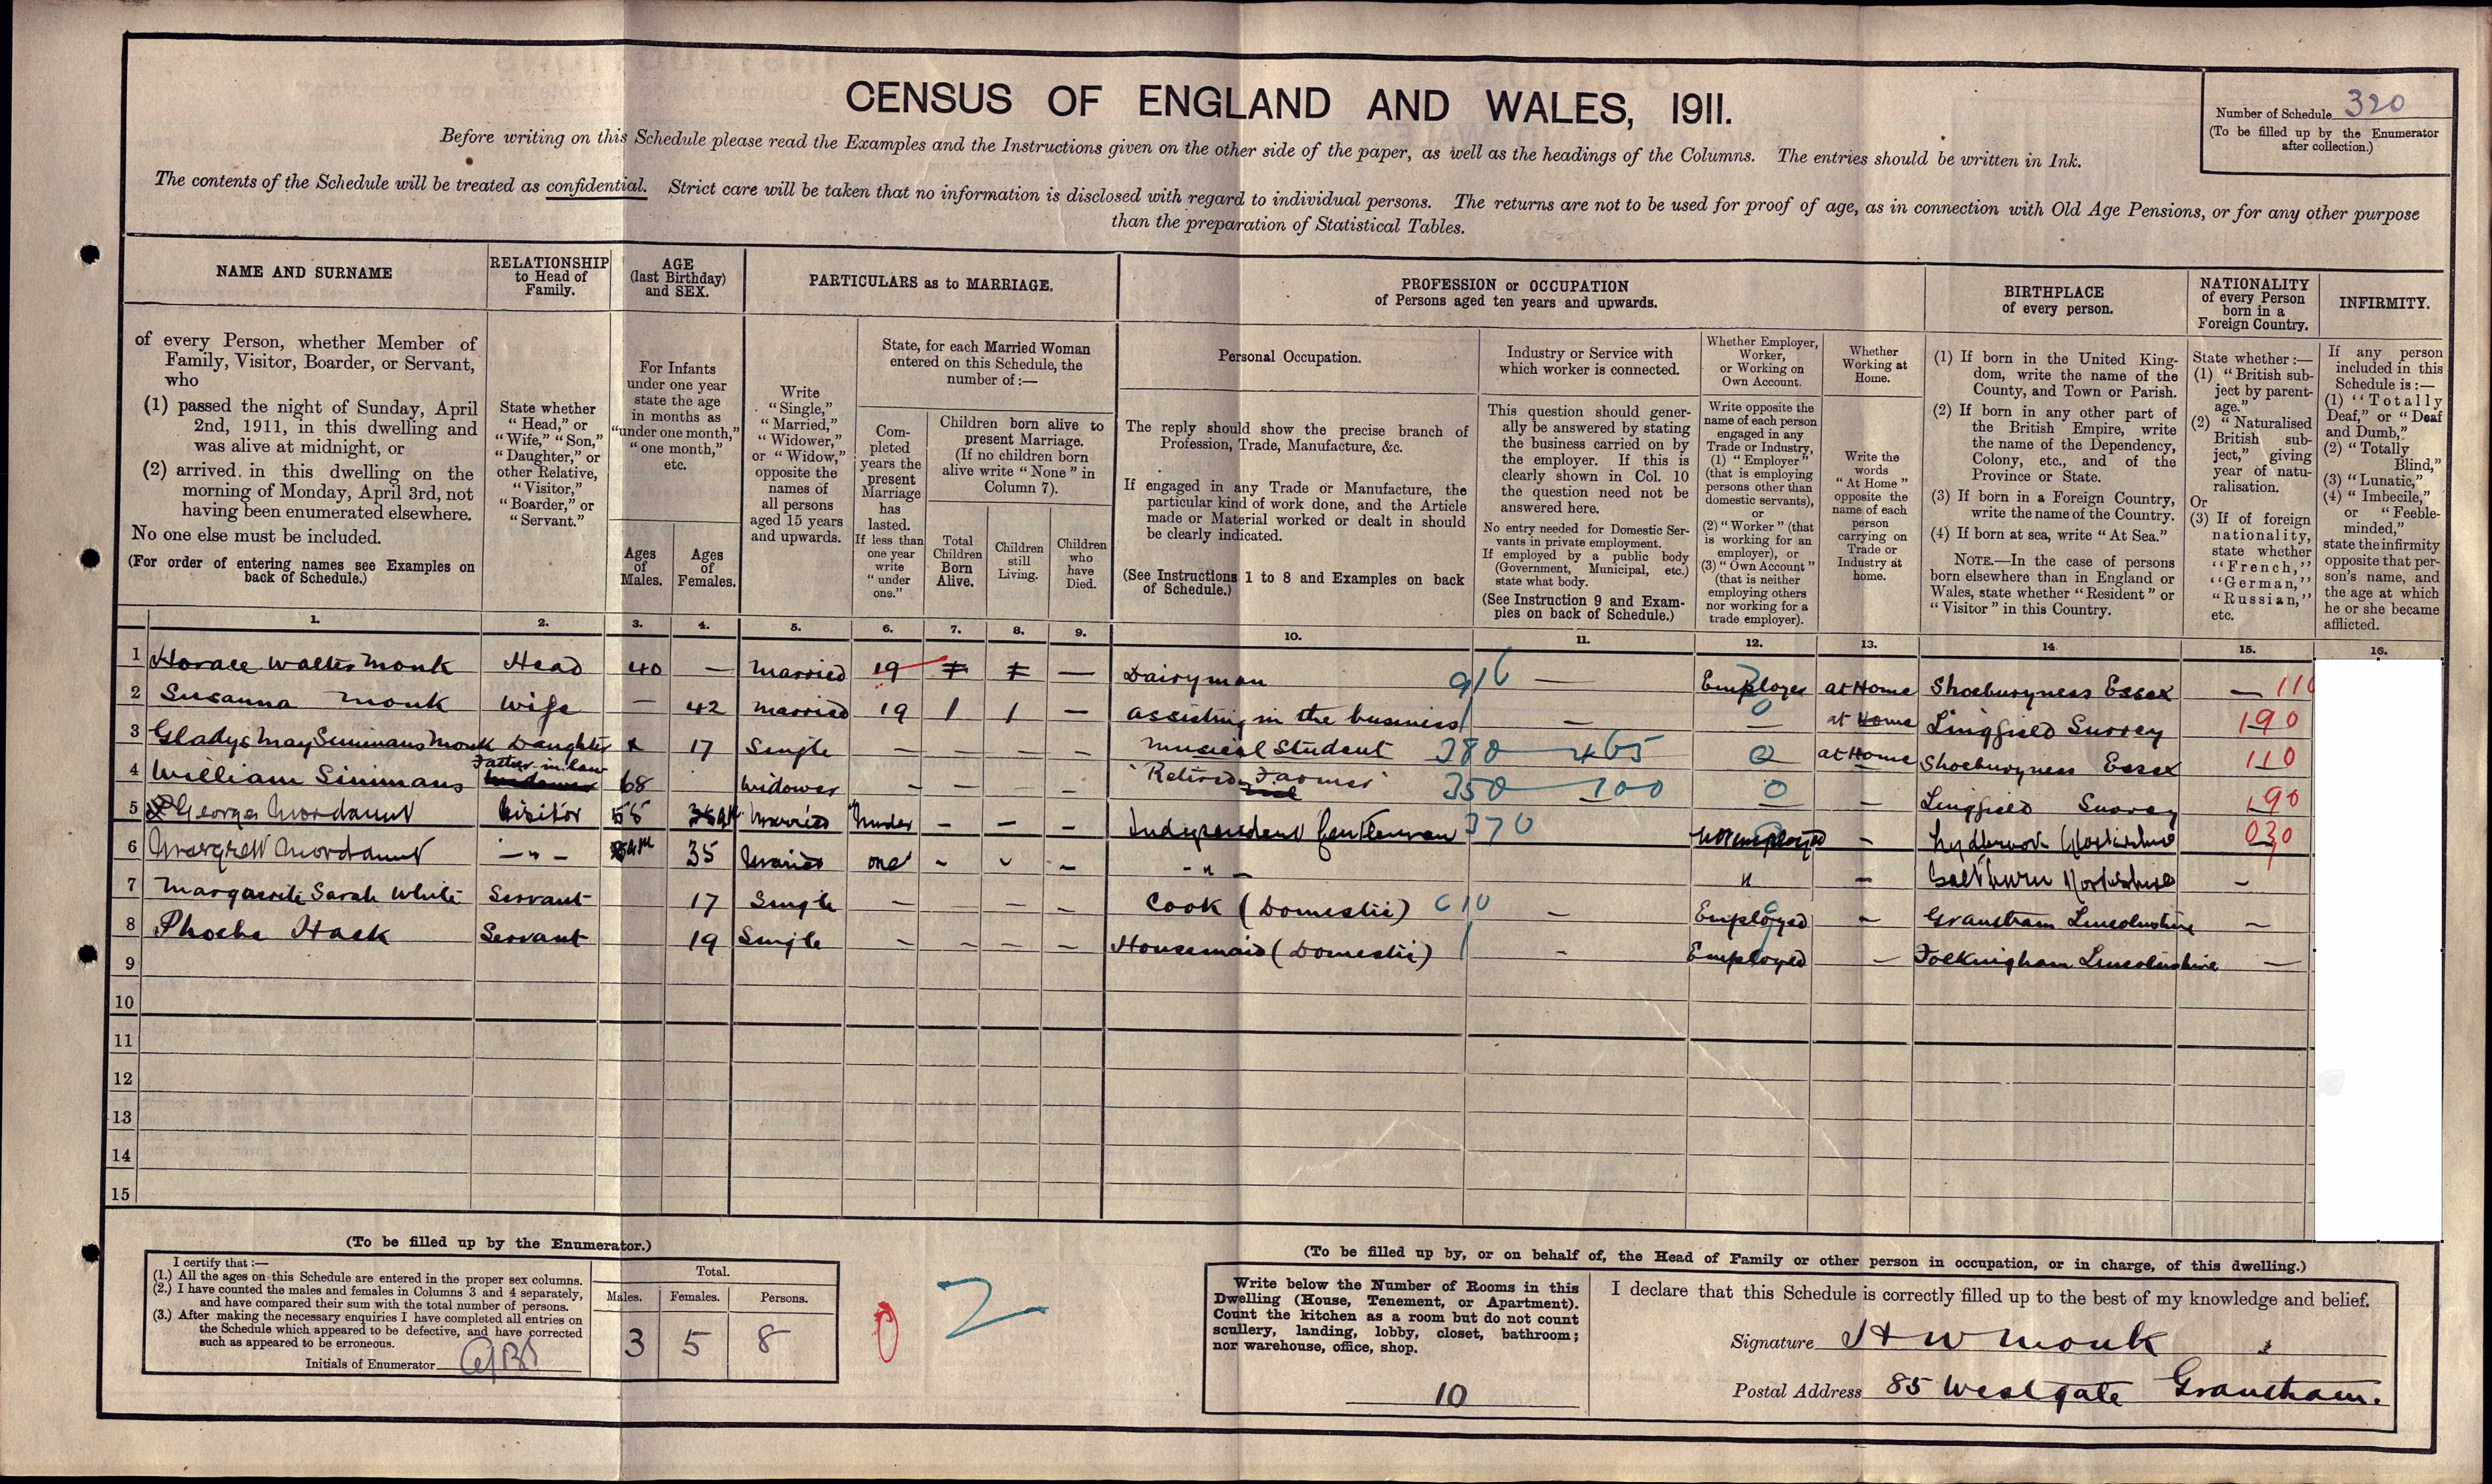 CENSUS OF ENGLAND AND WALES, 1911.
Number of Schedule 320
(To be filled up by the Enumerator
after collection.)
Before writing on this Schedule please read the Examples and the Instructions given on the other side of the paper, as well as the headings of the Columns. The entries should be written in Ink.
The contents of the Schedule will be treated as confidential. Strict care will be taken that no information is disclosed with regard to individual persons. The returns are not to be used for proof of age, as in connection with Old Age Pensions, or for any other purpose
than the preparation of Statistical Tables.
NAME AND SURNAME
of every Person, whether Member of
Family, Visitor, Boarder, or Servant,
who
(1) passed the night of Sunday, April
2nd, 1911, in this dwelling and
was alive at midnight, or
(2) arrived in this dwelling on the
morning of Monday, April 3rd, not
having been enumerated elsewhere.
No one else must be included.
(For order of entering names see Examples on
back of Schedule.)
RELATIONSHIP
to Head of
Family.
State whether
"Head," or
"Wife," "Son,"
"Daughter," or
other Relative,
"Visitor,"
"Boarder," or
"Servant."
AGE
(last Birthday)
and SEX.
For Infants
under one year
state the age
in months as
"under one month,"
"one month,"
etc.
Ages
of
Males.
Ages
of
Females.
PARTICULARS as to MARRIAGE.
Write
"Single,"
"Married,"
"Widower,"
or "Widow,"
opposite the
names of
all persons
aged 15 years
and upwards.
State, for each Married Woman
entered on this Schedule, the
number of:—
Com-
pleted
years the
present
Marriage
has
lasted.
If less than
one year
write
"under
one."
Children born alive to
present Marriage.
(If no children born
alive write "None" in
Column 7).
Total
Children
Born
Alive.
Children
still
Living.
Children
who
have
Died.
PROFESSION or OCCUPATION
of Persons aged ten years and upwards.
Personal Occupation.
The reply should show the precise branch of
Profession, Trade, Manufacture, &c.
If engaged in any Trade or Manufacture, the
particular kind of work done, and the Article
made or Material worked or dealt in should
be clearly indicated.
(See Instructions 1 to 8 and Examples on back
of Schedule.)
Industry or Service with
which worker is connected.
This question should gener-
ally be answered by stating
the business carried on by
the employer. If this is
clearly shown in Col. 10
the question need not be
answered here.
No entry needed for Domestic Ser-
vants in private employment.
If employed by a public body
(Government, Municipal, etc.)
state what body.
(See Instruction 9 and Exam-
ples on back of Schedule.)
Whether Employer,
Worker,
or Working on
Own Account.
Write opposite the
name of each person
engaged in any
Trade or Industry,
(1) "Employer"
(that is employing
persons other than
domestic servants),
or
(2) "Worker" (that
is working for an
employer), or
(3) "Own Account"
(that is neither
employing others
nor working for a
trade employer).
Whether
Working at
Home.
Write the
words
"At Home"
opposite the
name of each
person
carrying on
Trade or
Industry at
home.
BIRTHPLACE
of every person.
(1) If born in the United King-
dom, write the name of the
County, and Town or Parish.
(2) If born in any other part of
the British Empire, write
the name of the Dependency,
Colony, etc., and of the
Province or State.
(3) If born in a Foreign Country,
write the name of the Country.
(4) If born at sea, write "At Sea."
NOTE.—In the case of persons
born elsewhere than in England or
Wales, state whether "Resident" or
"Visitor" in this Country.
NATIONALITY
of every Person
born in a
Foreign Country.
State whether:—
(1) "British sub-
ject by parent-
age."
(2) "Naturalised
British sub-
ject," giving
year of natu-
ralisation.
Or
(3) If of foreign
nationality,
state whether
"French,"
"German,"
"Russian,"
etc.
INFIRMITY.
If any person
included in this
Schedule is:—
(1) "Totally
Deaf," or "Deaf
and Dumb,"
(2) "Totally
Blind,"
(3) "Lunatic,"
(4) "Imbecile,"
or "Feeble-
minded,"
state the infirmity
opposite that per-
son's name, and
the age at which
he or she became
afflicted.
1. 2. 3. 4. 5. 6. 7. 8. 9. 10. 11. 12. 13. 14. 15. 16.
1 Horace Walter Monk Head 40 — Married 19 — Dairyman 916 — Employer at Home Shoeburyness Essex — 110
2 Susanna Monk Wife — 42 Married 19 1 1 — assisting in the business — 0 — at Home Lingfield Surrey 190
3 Gladys May Simmans Monk Daughter 17 Single — — — — Musical Student 380 — 465 0 at Home Shoeburyness Essex 110
4 William Simmans Father in law 68 Widower — — — — Retired Farmer 350 — 100 0 — Lingfield Surrey 190
5 George Mordaunt Visitor 55 Married Under — — — Independent Gentleman 370 — 030
6 Margrett Mordaunt — " — 35 Married one — — — — " — " —
7 Marguerite Sarah White Servant 17 Single — — — — Cook (Domestic) 010 — Employed — Grantham Lincolnshire —
8 Phoebe Hack Servant 19 Single — — — — Housemaid (Domestic) — Employed — Folkingham Lincolnshire —
9
10
11
12
13
14
15
(To be filled up by the Enumerator.)
I certify that:—
(1.) All the ages on this Schedule are entered in the proper sex columns.
(2.) I have counted the males and females in Columns 3 and 4 separately,
and have compared their sum with the total number of persons.
(3.) After making the necessary enquiries I have completed all entries on
the Schedule which appeared to be defective, and have corrected
such as appeared to be erroneous.
Initials of Enumerator
Total.
Males. Females. Persons.
3 5 8
0 2
(To be filled up by, or on behalf of, the Head of Family or other person in occupation, or in charge, of this dwelling.)
Write below the Number of Rooms in this
Dwelling (House, Tenement, or Apartment).
Count the kitchen as a room but do not count
scullery, landing, lobby, closet, bathroom;
nor warehouse, office, shop.
10
I declare that this Schedule is correctly filled up to the best of my knowledge and belief.
Signature H W Monk
Postal Address 85 Westgate Grantham.